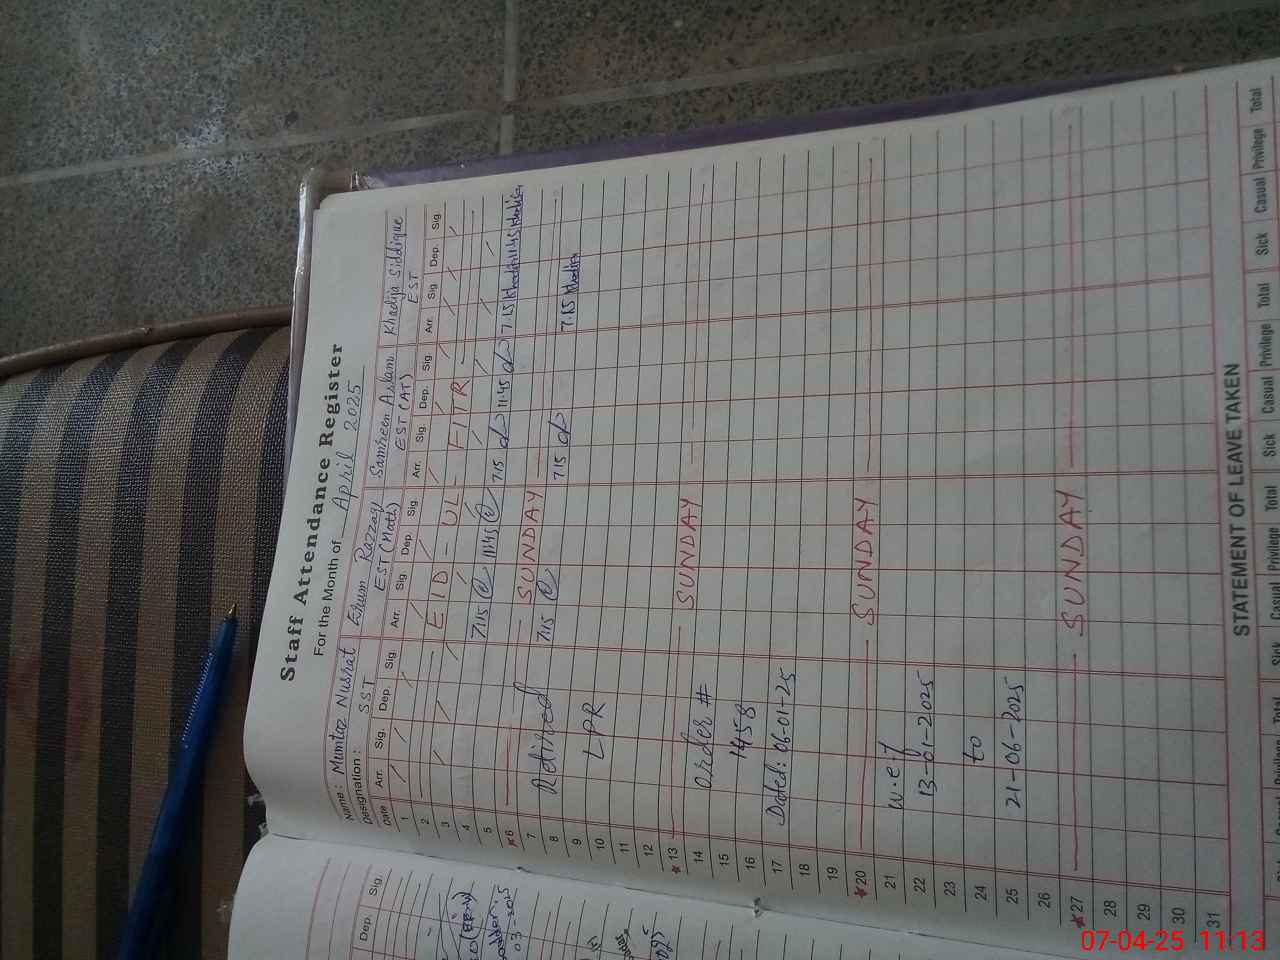 Staff Attendance Register
For the Month of April 2025
Name: Mumtaz Nusrat Erum Razzaq Samreen Aslam Khadija Siddique
Designation: SST EST (Math) EST (AT) EST
Date Arr. Sig. Dep. Sig. Arr. Sig Dep. Sig Arr. Sig. Dep. Sig Arr. Sig Dep. Sig.
1
2
3 EID-UL-FITR
4
5 7:15 11:45 7:15 11:45 7.15 Khadija 11:45 Khadija
*6 SUNDAY
7 7:15 7:15 7.15 Khadija
8 Retired
9
10 LPR
11
12
*13 SUNDAY
14 Order #
15
16 1458
17 Dated: 06-01-25
18
19
*20 SUNDAY
21 w.e.f
22 13-01-2025
23
24 to
25 21-06-2025
26
*27 SUNDAY
28
29
30
31
STATEMENT OF LEAVE TAKEN
Sick Casual Privilege Total Sick Casual Privilege Total Sick Casual Privilege Total
Dep. Sig.
03-2025
07-04-25 11:13